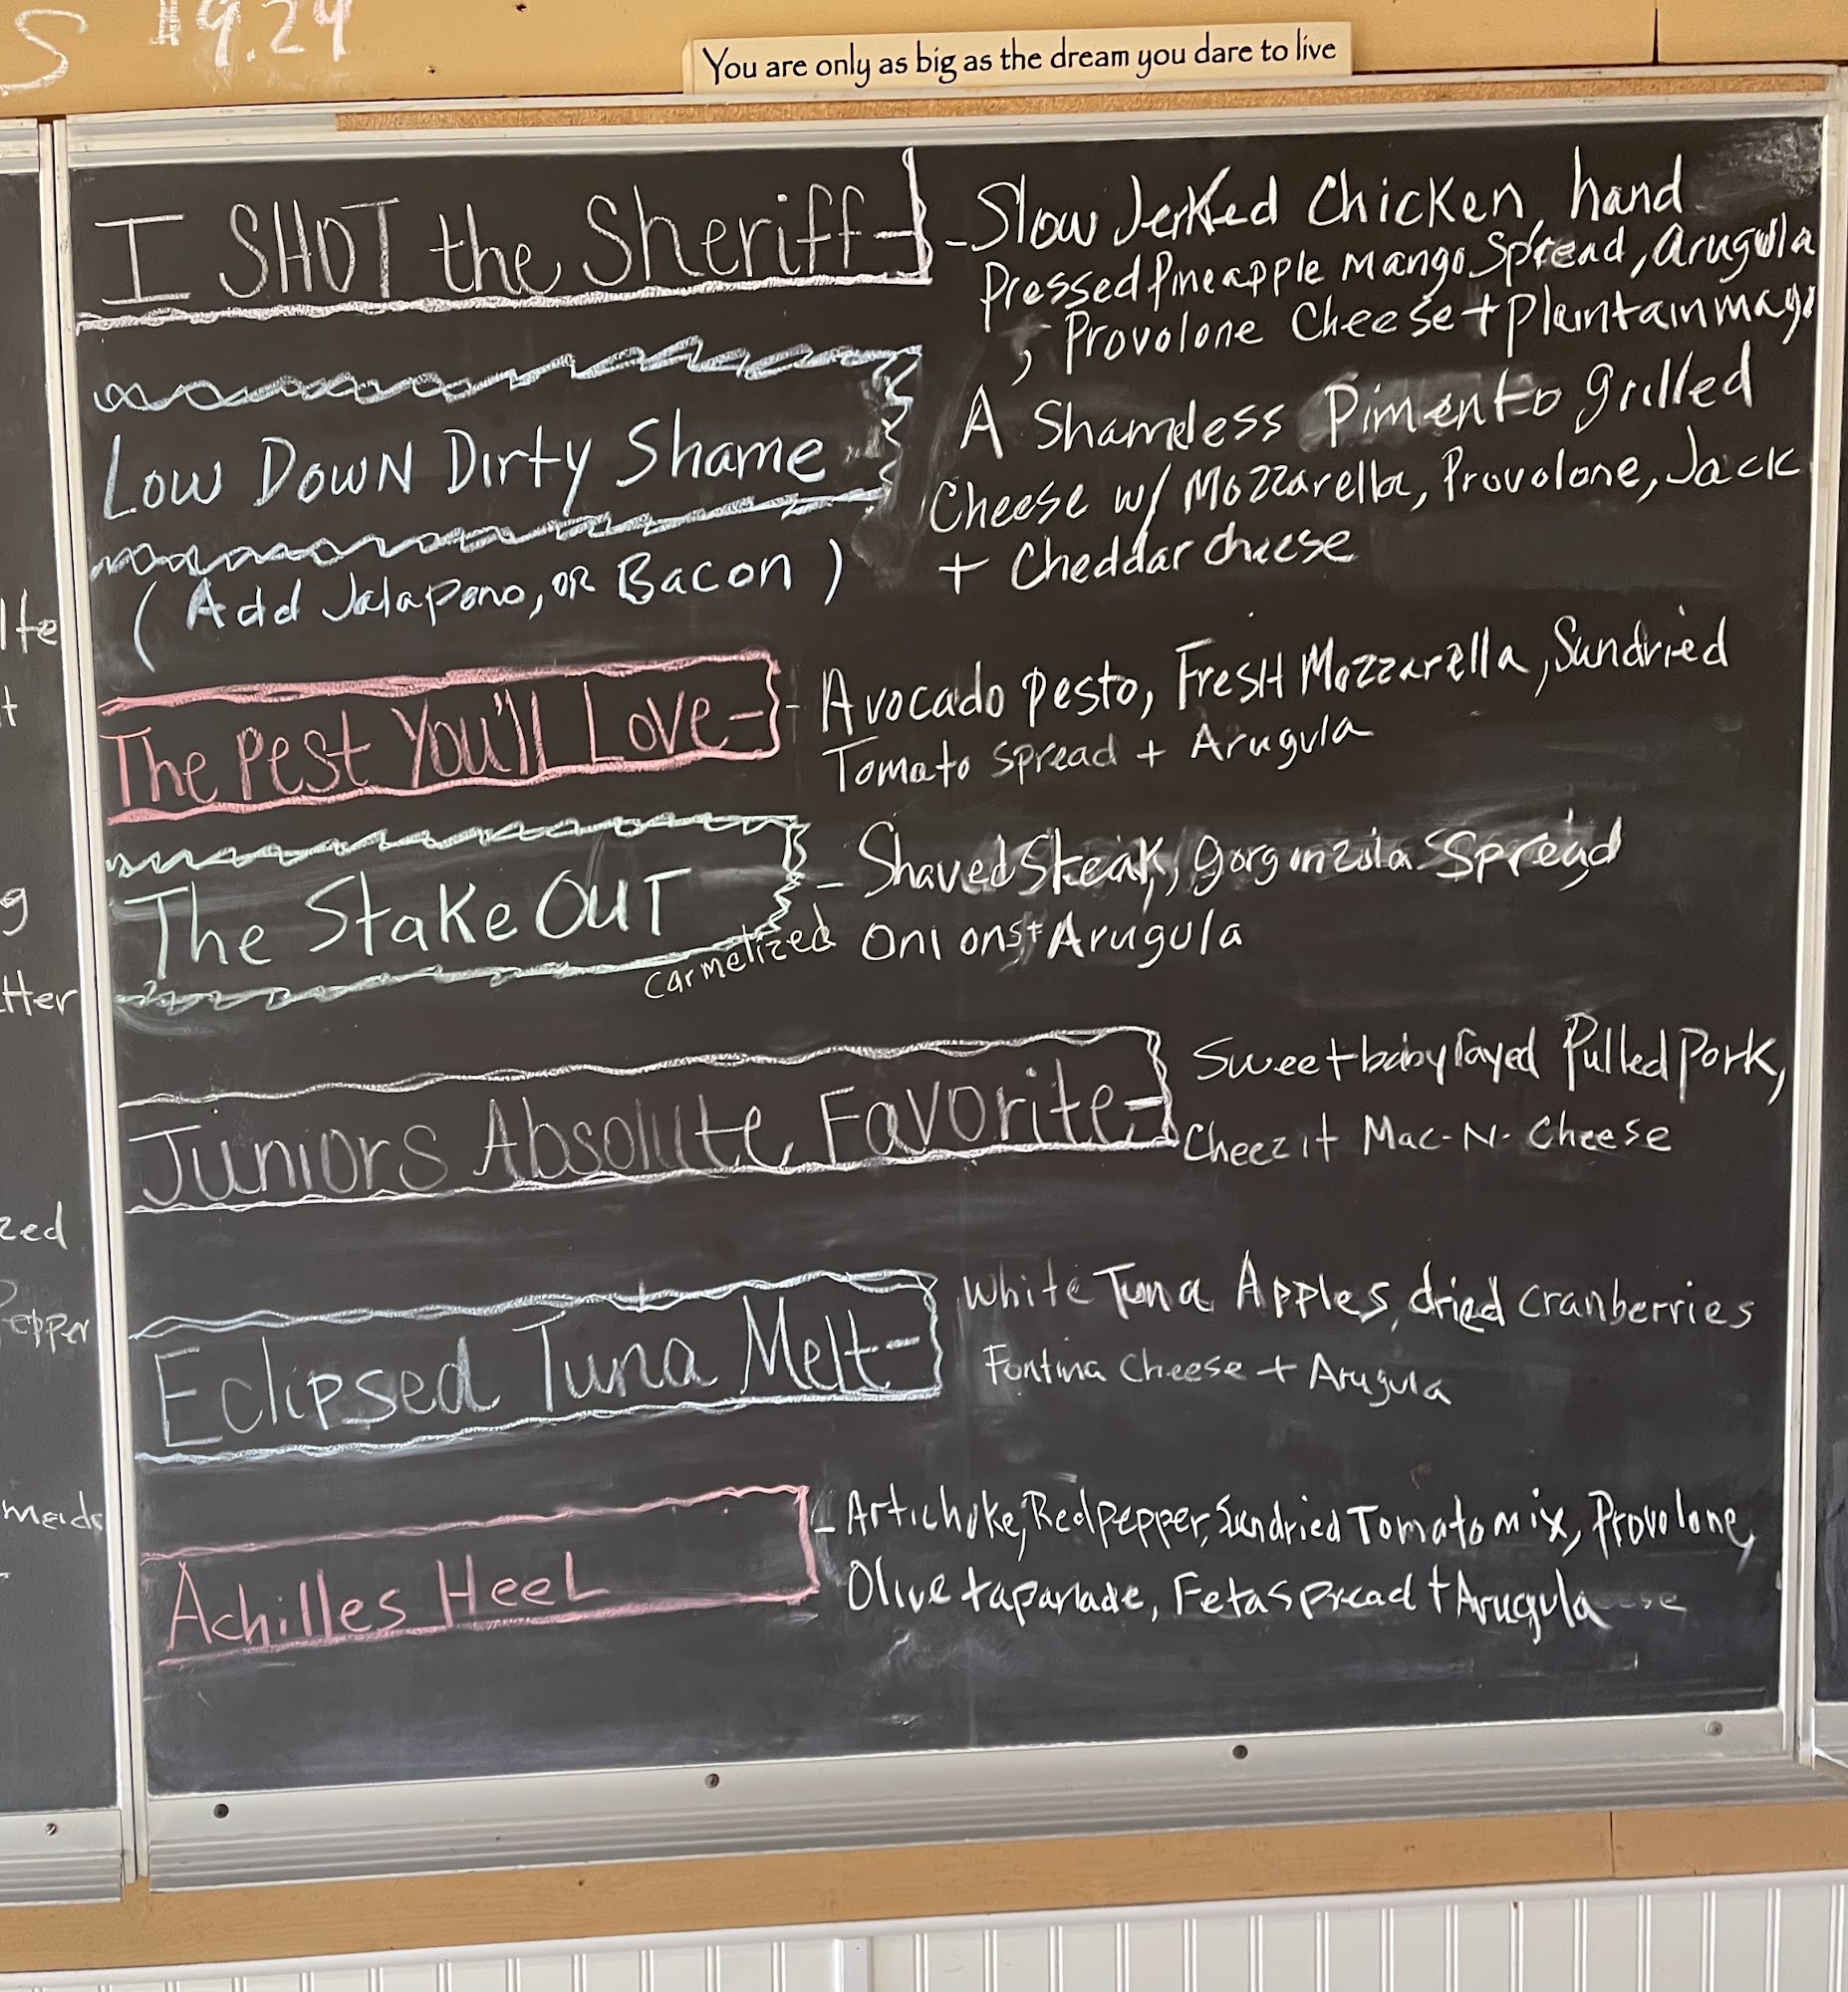 S $9.29
You are only as big as the dream you dare to live
I SHOT the Sheriff - - Slow Jerked Chicken, hand
Pressed Pineapple Mango Spread, Arugula
, Provolone Cheese + Plantain mayo
Low Down Dirty Shame
(Add Jalapeno, OR Bacon)
A Shameless Pimento grilled
Cheese w/ Mozzarella, Provolone, Jack
+ Cheddar cheese
The Pest You'll Love - - Avocado pesto, Fresh Mozzarella, Sundried
Tomato Spread + Arugula
The Stake OUT - Shaved Steak, gorgonzola Spread
Carmelized Onions + Arugula
Juniors Absolute Favorite - Sweet baby rayed Pulled Pork,
Cheez it Mac-N-Cheese
Eclipsed Tuna Melt - White Tuna Apples, dried cranberries
Fontina Cheese + Arugula
Achilles Heel - Artichoke, Red pepper, Sundried Tomato mix, Provolone,
Olive tapanade, Feta Spread + Arugula
tter
zed
Pepper